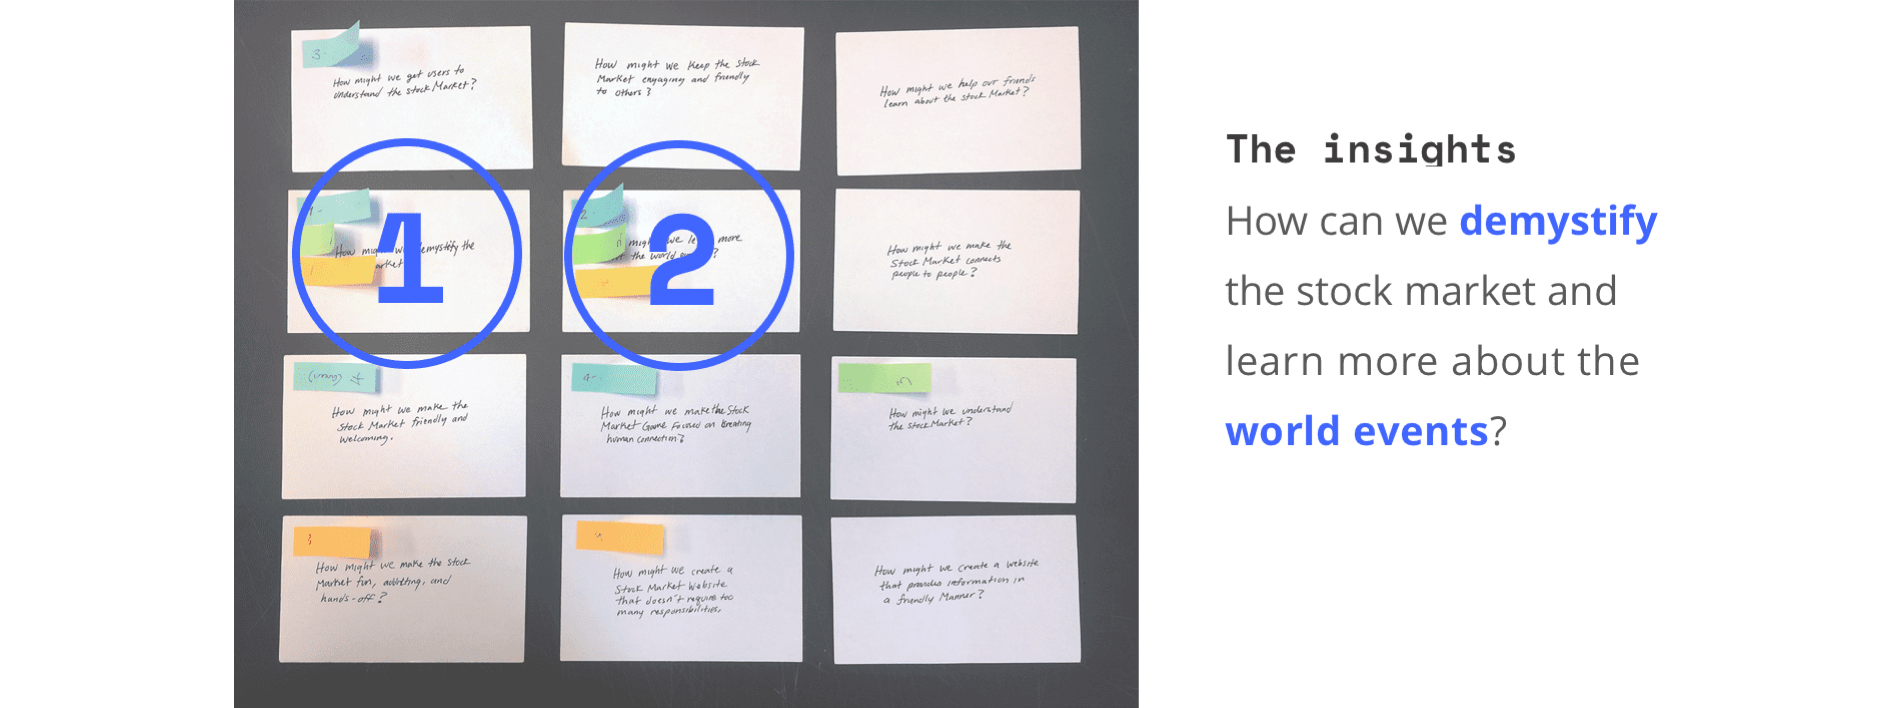 3
How might we get users to
understand the stock Market?
How might we keep the stock
Market engaging and friendly
to others?
How might we help our friends
learn about the stock Market?
1
How might we demystify the
market
2
might we more
the world ?
How might we make the
Stock Market connects
people to people?
(wrong)
How might we make the
Stock Market friendly and
welcoming.
4
How might we make the Stock
Market Game focused on Creating
human connection?
5
How might we understand
the stock Market?
3
How might we make the stock
Market fun, addicting, and
hands-off?
How might we create a
Stock Market Website
that doesn't require too
many responsibilities.
How might we create a website
that provides information in
a friendly Manner?
The insights
How can we demystify
the stock market and
learn more about the
world events?